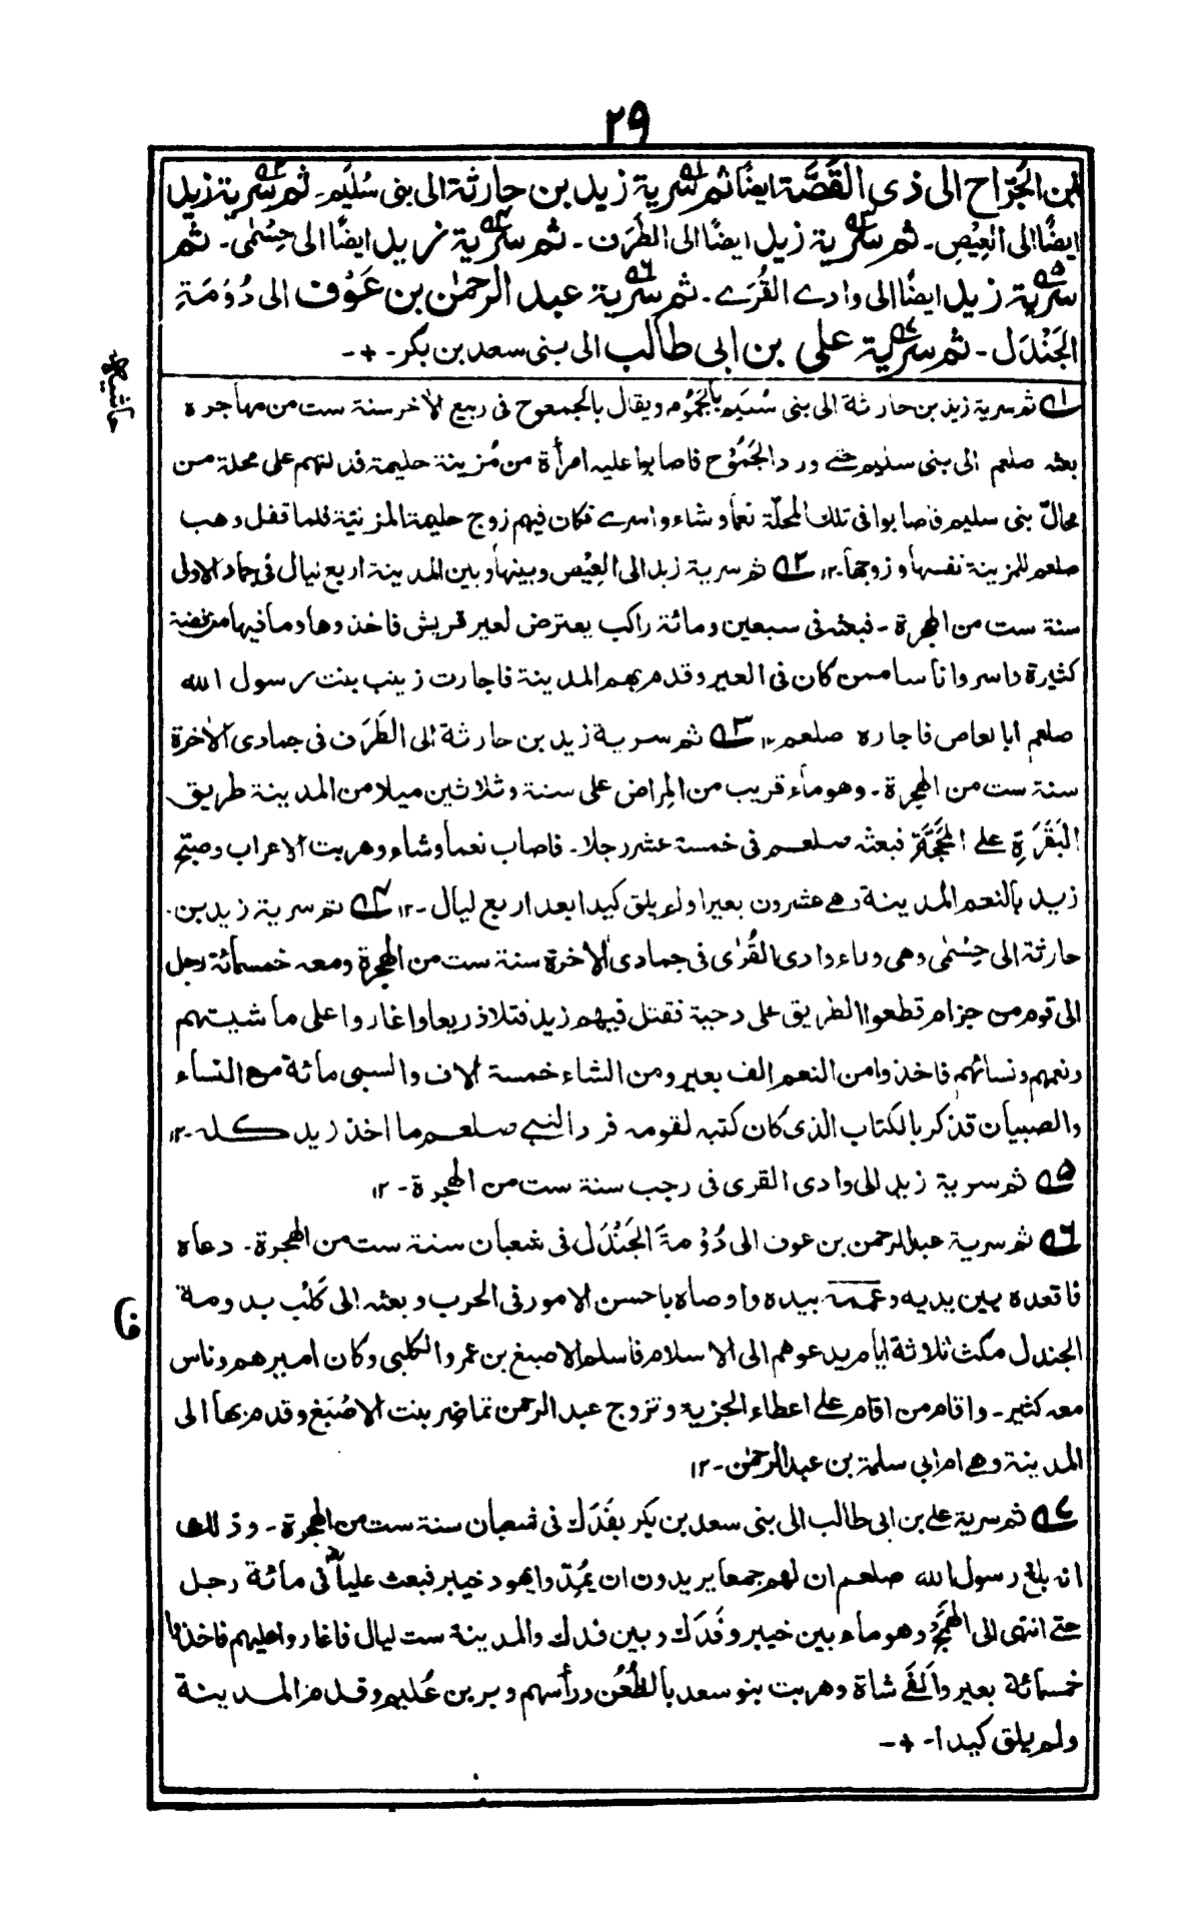 ٢٩
ابن الجَرّاح الى ذى القَصَّة ايضًا ثم سرية زيد بن حارثة الى بنى سُلَيم۔ ثم سرية زيد
ايضًا الى العِيْصِ۔ ثم سرية زيد ايضًا الى الطَرَف۔ ثم سرية زيد ايضًا الى حِسْمٰى۔ ثم
سرية زيد ايضًا الى وادے القُرٰے۔ ثم سرية عبد الرحمٰن بن عَوْف الى دُوْمَةِ
الجَنْدَل۔ ثم سرية على بن ابى طالب الى بنى سعد بن بكر۔+۔
حاشيه
١؎ ثم سرية زيد بن حارثة الى بنى سُلَيم بالجَمُوم ويقال بالجموح فى ربيع الآخر سنة ست من مهاجره
بعثه صلعم الى بنى سليم حتے ورد الجَمُوْح فاصابوا عليه امرأة من مُزينة حليمة فدلتهم على محلة من
محالّ بنى سليم فاصابوا فى تلك المحلّة نعمًا وشاء واسرے فكان فيهم زوج حليمة المزنيّة فلما قفل وهب
صلعم للمزينة نفسها وزوجها۔١٢ ٢؎ ثم سرية زيد الى العِيْص وبينها وبين المدينة اربع ليال فى جماد الاولى
سنة ست من الهجرة۔ فبعثه فى سبعين ومائة راكب يعترض لعير قريش فاخذوها وما فيها من فضة
كثيرة واسروا ناسا ممن كان فى العير وقدم بهم المدينة فاجارت زينب بنت رسول الله
صلعم ابا العاص فاجاره صلعم۔١٢ ٣؎ ثم سرية زيد بن حارثة الى الطَرَف فى جمادى الآخرة
سنة ست من الهجرة۔ وهو ماء قريب من المِراض على ستة وثلاثين ميلا من المدينة طريق
البَقَرَةِ علے المَحَجَّة فبعثه صلعم فى خمسة عشر رجلا۔ فاصاب نعما وشاء وهربت الاعراب وصبّح
زيد بالنعم المدينة وهے عشرون بعيرا ولم يلق كيدا بعد اربع ليال۔١٢ ٤؎ ثم سرية زيد بن
حارثة الى حِسْمٰى وهى وراء وادى القُرٰى فى جمادى الآخرة سنة ست من الهجرة ومعه خمسمائة رجل
الى قوم من جزام قطعوا الطريق على دحية فقتل فيهم زيد قتلا ذريعا واغاروا على ماشيتهم
ونعمهم ونسائهم فاخذوا من النعم الف بعير ومن الشاء خمسة آلاف والسبى مائة من النساء
والصبيان فذكر بالكتاب الذى كان كتبه لقومه فرد النبے صلعم ما اخذ زيد كله۔١٢
٥؎ ثم سرية زيد الى وادى القرى فى رجب سنة ست من الهجرة۔١٢
٦؎ ثم سرية عبد الرحمن بن عوف الى دُوْمَةَ الجَنْدَل فى شعبان سنة ست من الهجرة۔ دعاه
فاقعده بين يديه وعممه بيده واوصاه باحسن الامور فى الحرب وبعثه الى كَلْب بدومة
الجندل مكث ثلاثة ايام يدعوهم الى الاسلام فاسلم الاصبغ بن عمرو الكلبى وكان اميرهم وناس
معه كثير۔ واقام من اقام علے اعطاء الجزية وتزوج عبد الرحمن تماضر بنت الاصْبَغ وقدم بها الى
المدينة وهے ام ابى سلمة بن عبد الرحمٰن۔١٢
٧؎ ثم سرية علے بن ابى طالب الى بنى سعد بن بكر بفَدَك فى شعبان سنة ست من الهجرة۔ وذلك
انه بلغ رسول الله صلعم ان لهم جمعا يريدون ان يُمِدّوا يهود خيبر فبعث عليا فى مائة رجل
حتے انتهى الى الهَمَج وهو ماء بين خيبر وفَدَك وبين فدك والمدينة ست ليال فاغاروا عليهم فاخذوا
خمسمائة بعير وألفَے شاة وهربت بنو سعد بالظُعُن ورأسهم وبر بن عُليم وقدم المدينة
ولم يلق كيدا۔+۔
فا